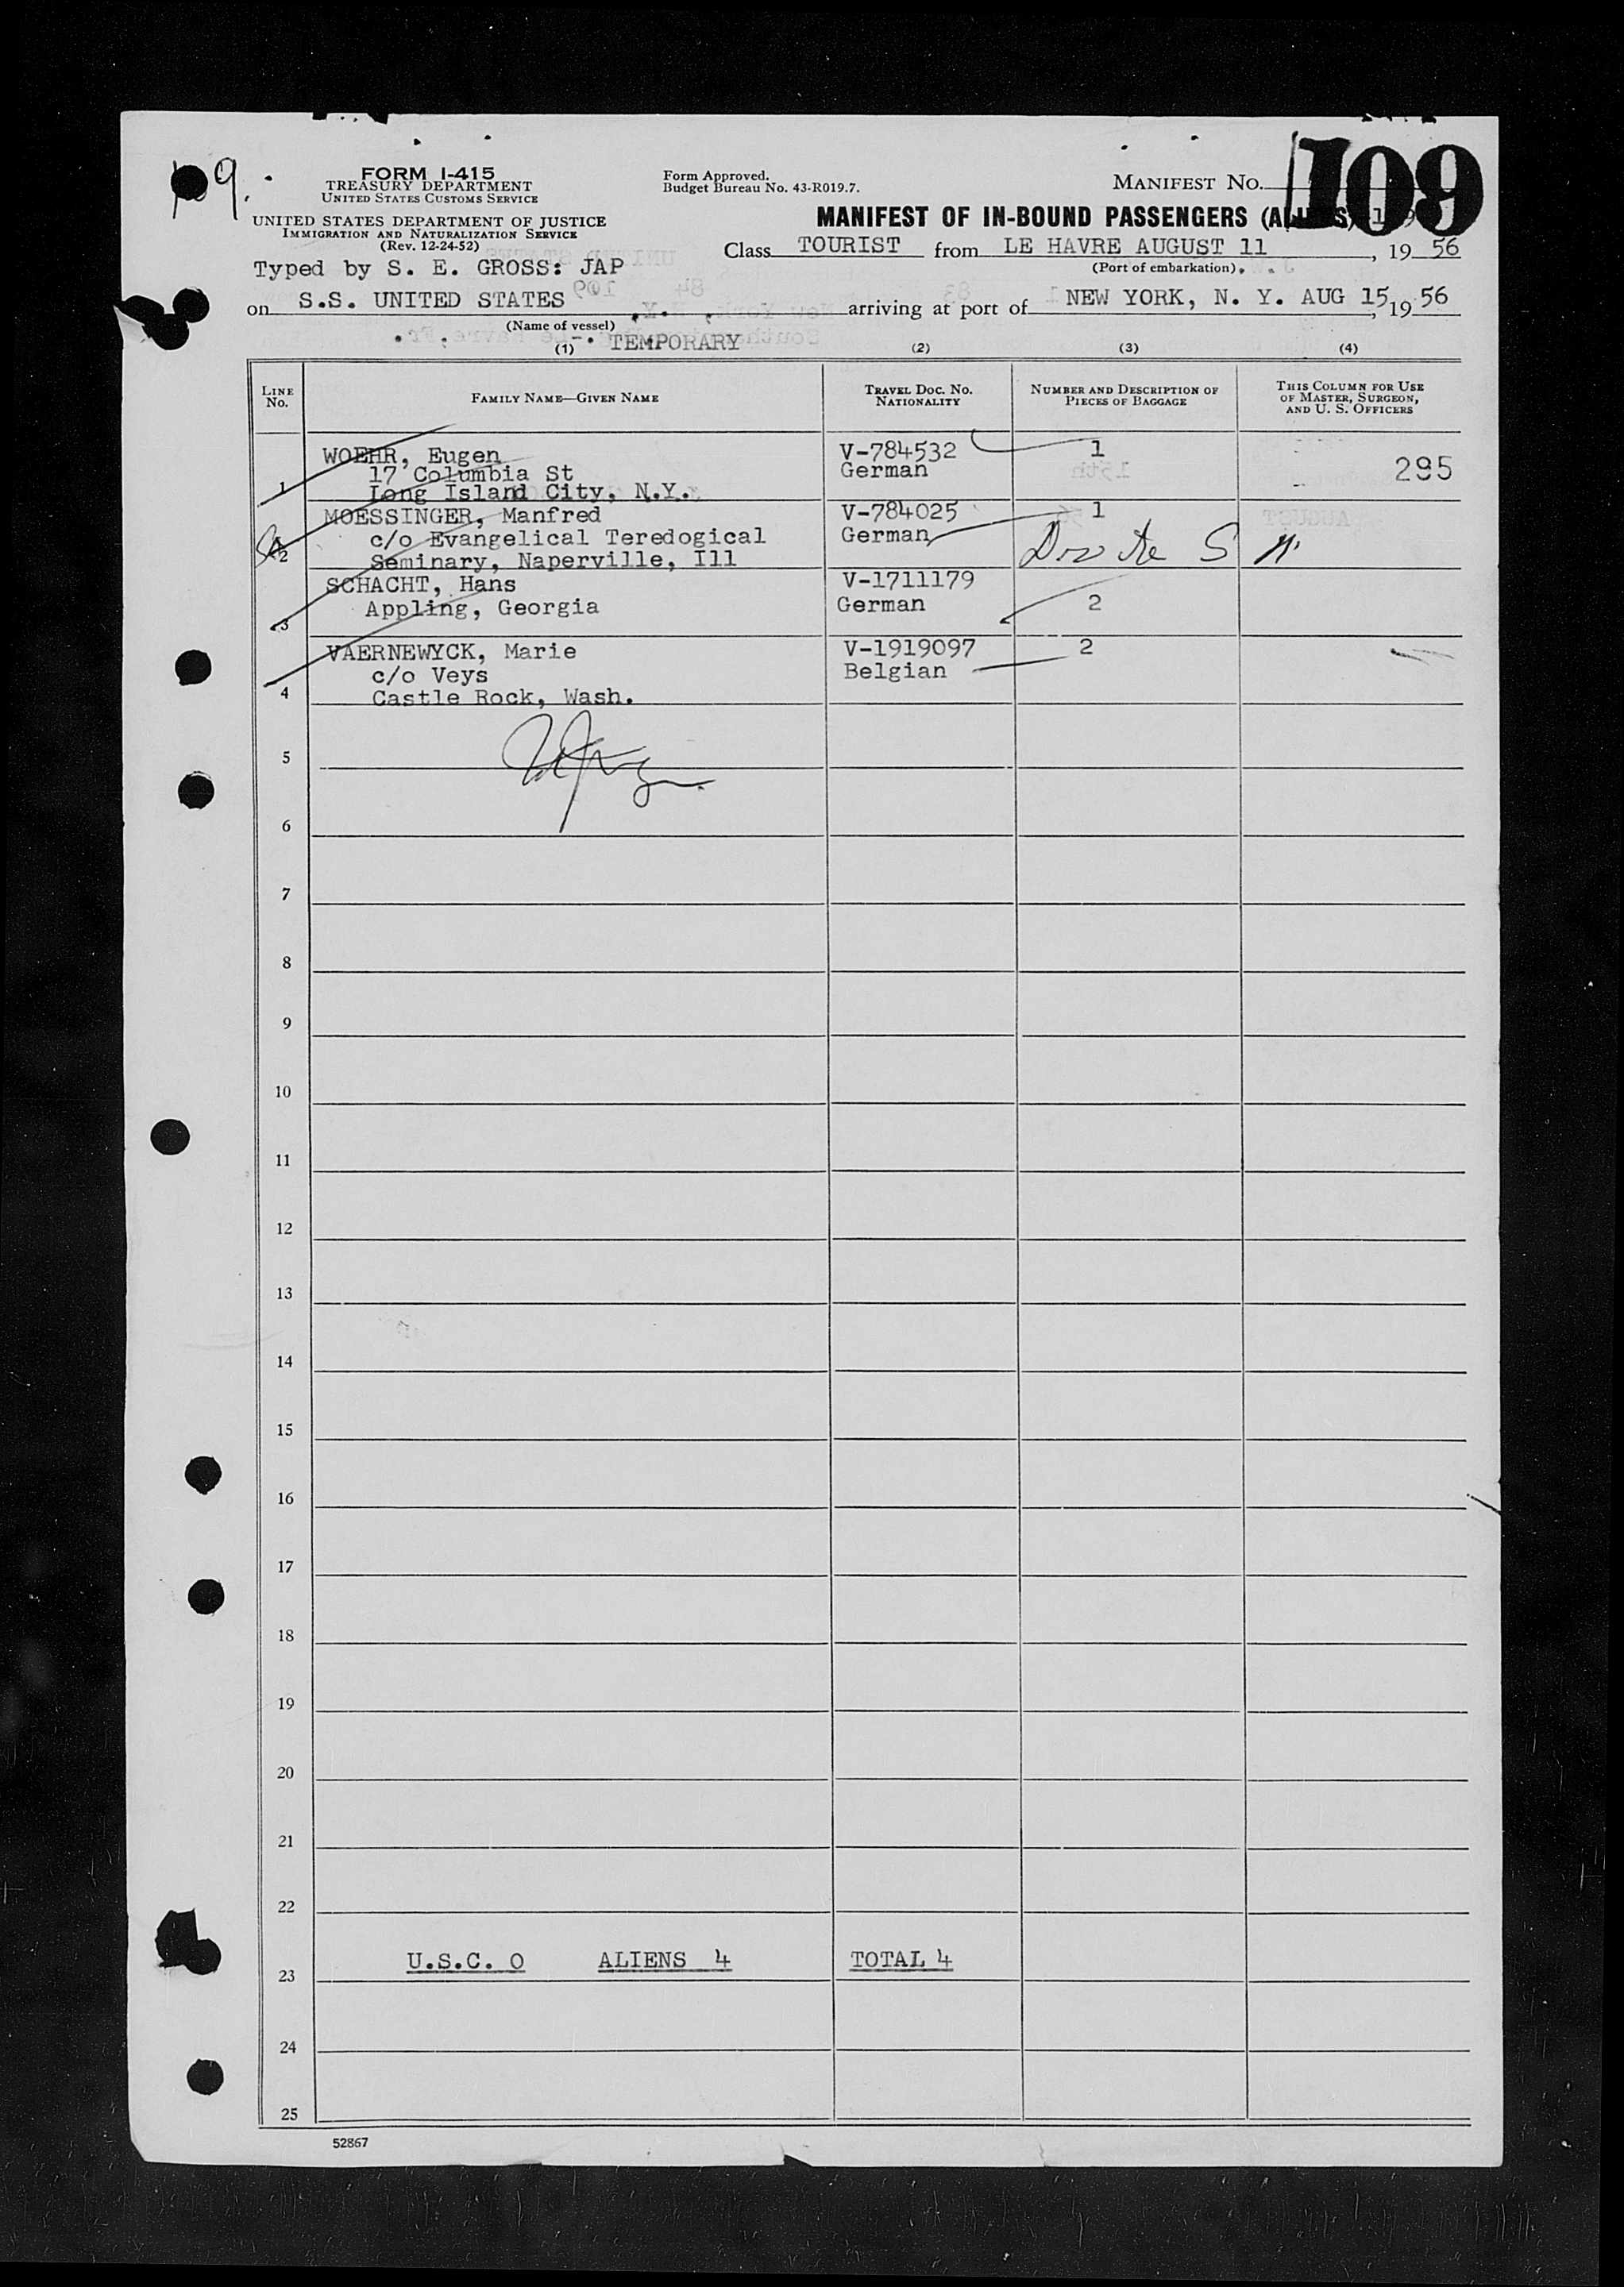 109.
FORM I-415
TREASURY DEPARTMENT
UNITED STATES CUSTOMS SERVICE
UNITED STATES DEPARTMENT OF JUSTICE
IMMIGRATION AND NATURALIZATION SERVICE
(Rev. 12-24-52)
Form Approved.
Budget Bureau No. 43-R019.7.
MANIFEST NO. 109
MANIFEST OF IN-BOUND PASSENGERS (ALIENS)
Class TOURIST from LE HAVRE AUGUST 11, 19 56
(Port of embarkation)
Typed by S. E. GROSS: JAP
on S.S. UNITED STATES arriving at port of NEW YORK, N. Y. AUG 15, 19 56
(Name of vessel)
TEMPORARY
(1) (2) (3) (4)
LINE NO. FAMILY NAME—GIVEN NAME TRAVEL DOC. NO. NATIONALITY NUMBER AND DESCRIPTION OF PIECES OF BAGGAGE THIS COLUMN FOR USE OF MASTER, SURGEON, AND U. S. OFFICERS
WOEHR, Eugen V-784532 1
17 Columbia St German 295
1 Long Island City, N.Y.
MOESSINGER, Manfred V-784025 1
c/o Evangelical Teredogical German
2 Seminary, Naperville, Ill
SCHACHT, Hans V-1711179
Appling, Georgia German 2
3
VAERNEWYCK, Marie V-1919097 2
c/o Veys Belgian
4 Castle Rock, Wash.
5
6
7
8
9
10
11
12
13
14
15
16
17
18
19
20
21
22
U.S.C. 0 ALIENS 4 TOTAL 4
23
24
25
52867